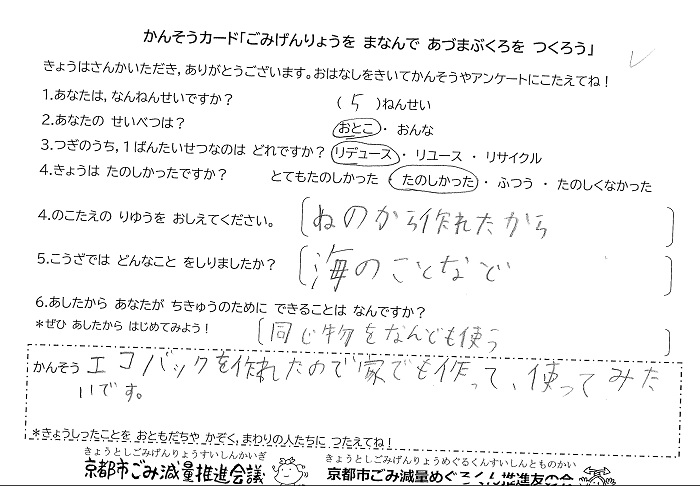 かんそうカード「ごみげんりょうを まなんで あづまぶくろを つくろう」
きょうはさんかいただき,ありがとうございます。おはなしをきいてかんそうやアンケートにこたえてね！
1.あなたは,なんねんせいですか？ ( 5 )ねんせい
2.あなたの せいべつは？ おとこ・おんな
3.つぎのうち,1ばんたいせつなのは どれですか？ リデュース・リユース・リサイクル
4.きょうは たのしかったですか？ とてもたのしかった・たのしかった・ふつう・たのしくなかった
4.のこたえの りゆうを おしえてください。 〔ぬのから作れたから〕
5.こうざでは どんなこと をしりましたか？ 〔海のことなど〕
6.あしたから あなたが ちきゅうのために できることは なんですか？
*ぜひ あしたから はじめてみよう！ 〔同じ物をなんども使う〕
かんそう エコバックを作れたので家でも作って、使ってみた
いです。
*きょうしったことを おともだちや かぞく,まわりの人たちに つたえてね！
きょうとしごみげんりょうすいしんかいぎ きょうとしごみげんりょうめぐるくんすいしんとものかい
京都市ごみ減量推進会議 京都市ごみ減量めぐるくん推進友の会